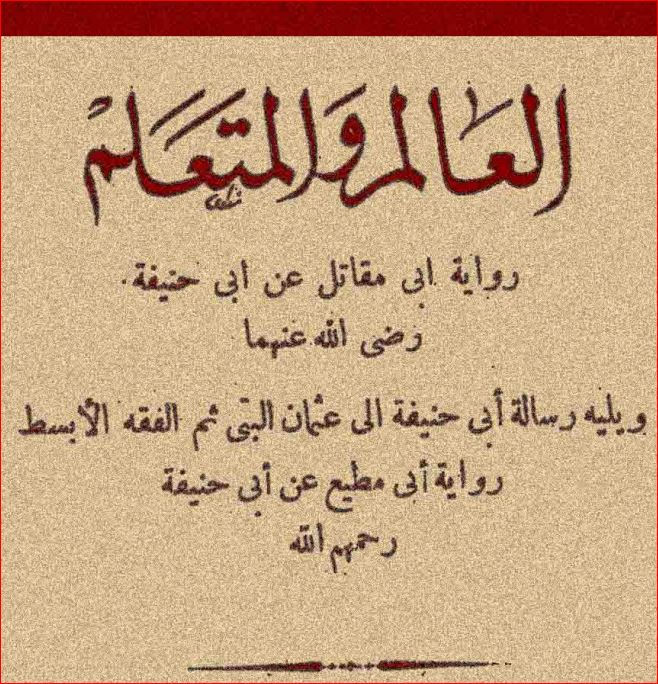 العالم والمتعلم
رواية ابى مقاتل عن ابى حنيفة
رضى الله عنهما
ويليه رسالة أبى حنيفة الى عثمان البتى ثم الفقه الأبسط
رواية أبى مطيع عن أبى حنيفة
رحمهم الله